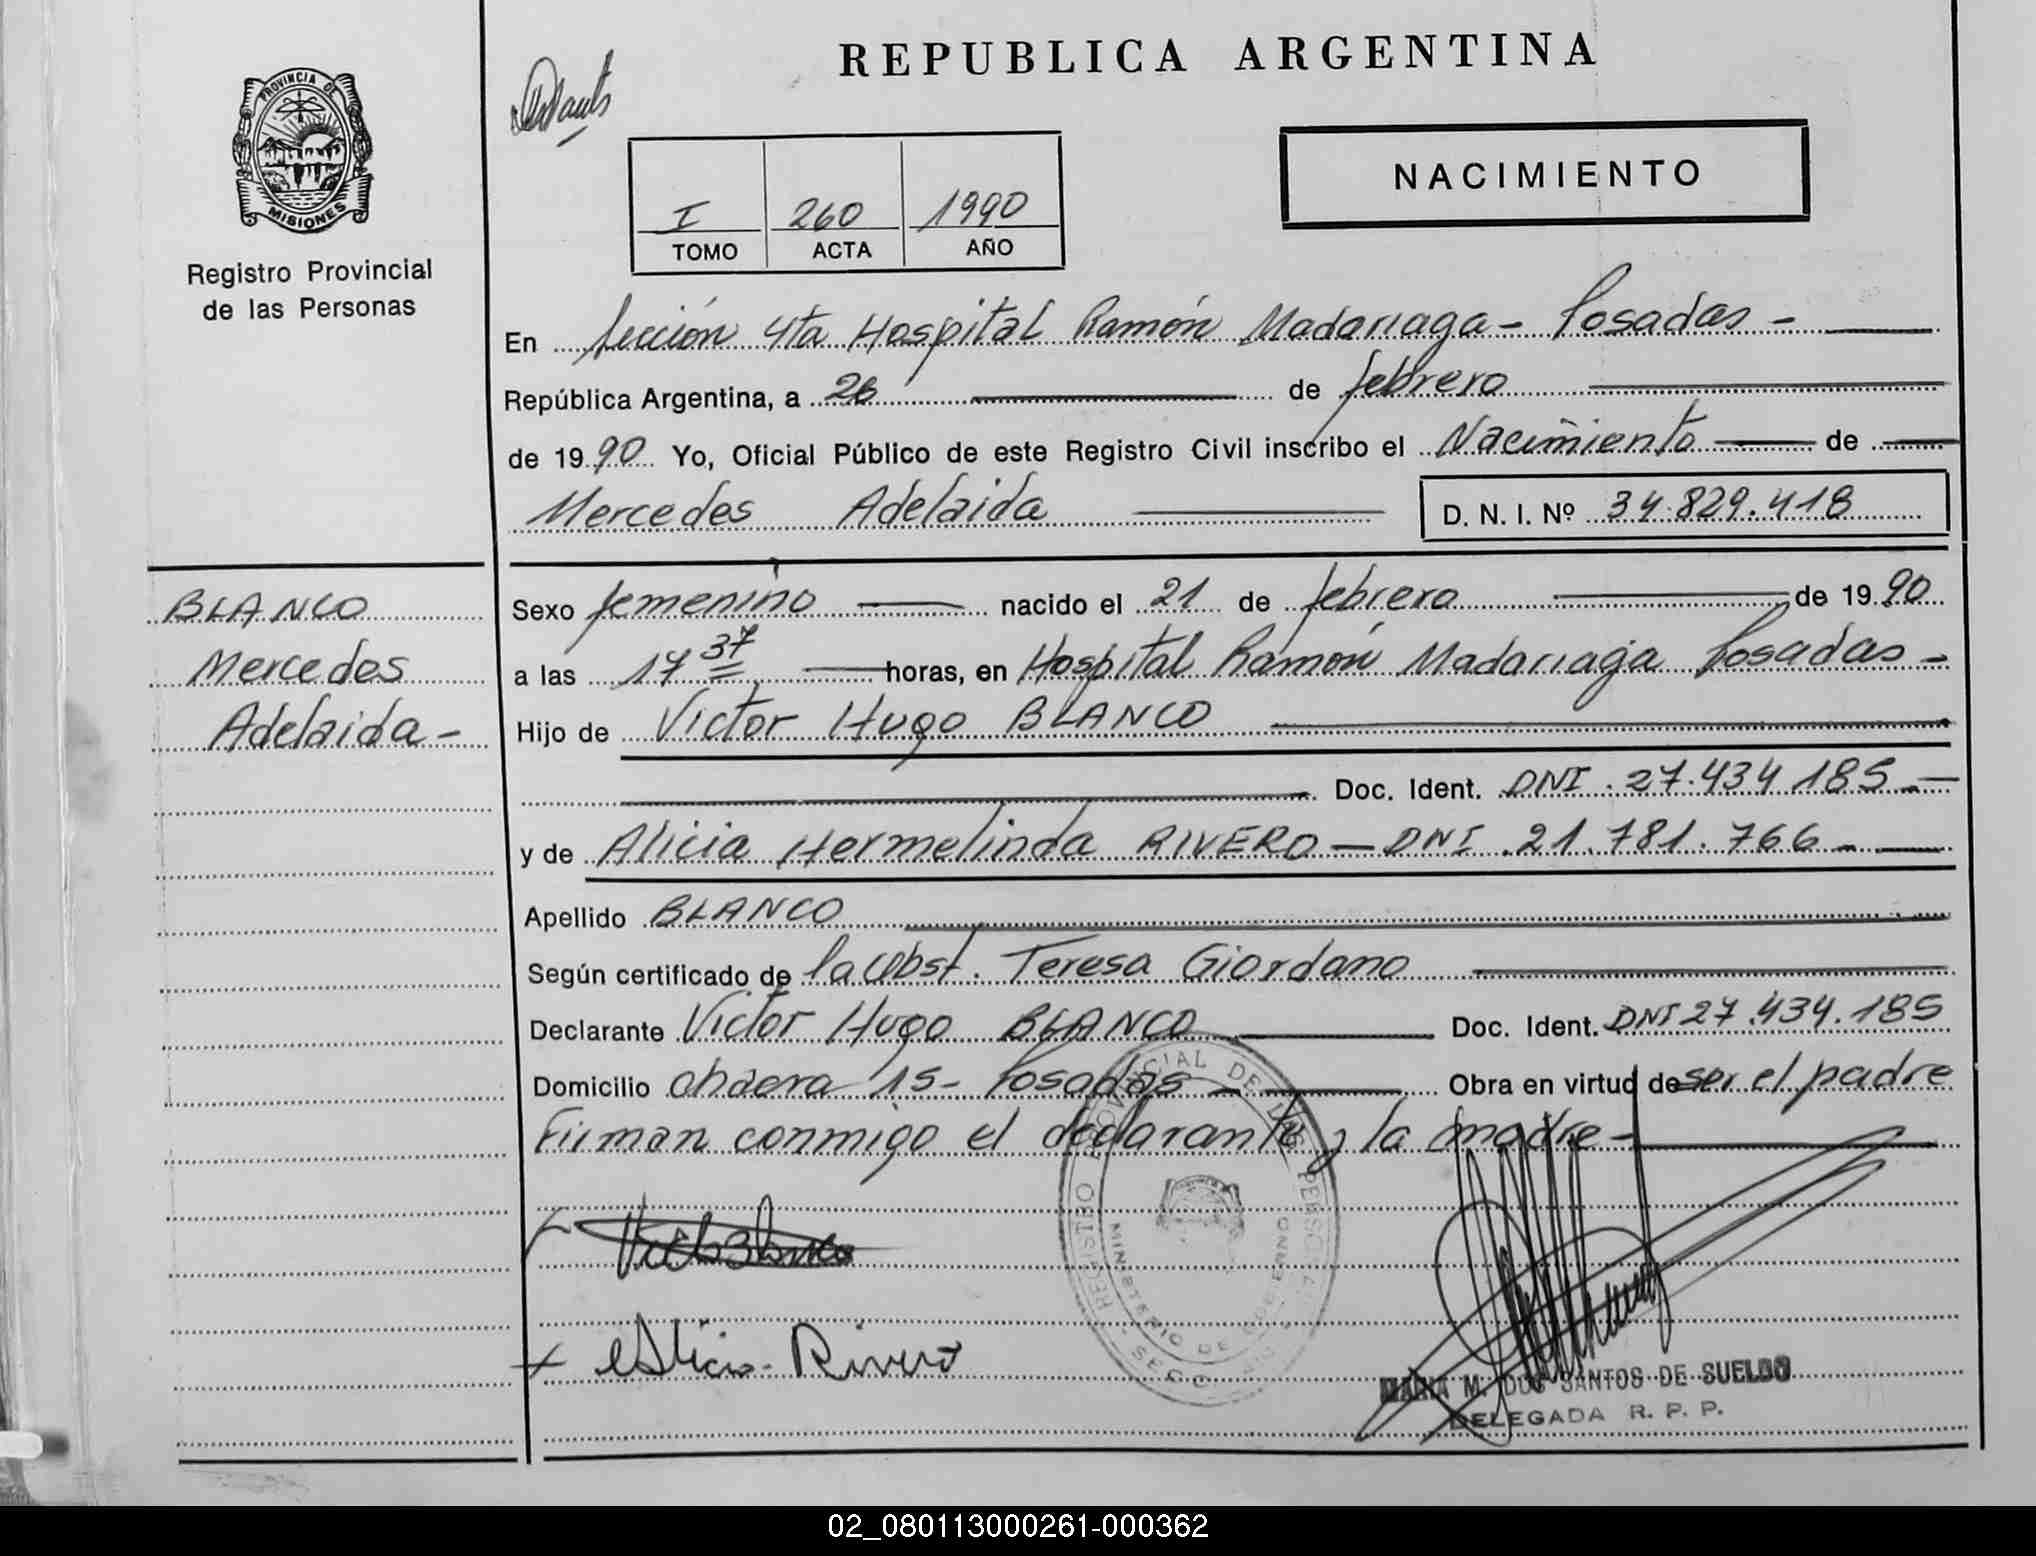 REPUBLICA ARGENTINA
PROVINCIA DE MISIONES
Registro Provincial
de las Personas
NACIMIENTO
I 260 1990
TOMO ACTA AÑO
En Sección 4ta Hospital Ramón Madariaga - Posadas -
República Argentina, a 26 de febrero
de 1990 Yo, Oficial Público de este Registro Civil inscribo el Nacimiento de
Mercedes Adelaida D. N. I. Nº 34.829.418
BLANCO
Mercedes
Adelaida -
Sexo femenino nacido el 21 de febrero de 1990
a las 17 37 horas, en Hospital Ramón Madariaga Posadas -
Hijo de Victor Hugo BLANCO
Doc. Ident. DNI. 27.434.185 -
y de Alicia Hermelinda RIVERO - DNI. 21.781.766 -
Apellido BLANCO
Según certificado de la Obst. Teresa Giordano
Declarante Victor Hugo BLANCO Doc. Ident. DNI 27.434.185
Domicilio 15 - Posadas - Obra en virtud de ser el padre
Firman conmigo el declarante y la madre -
REGISTRO PROVINCIAL DE LAS PERSONAS
MINISTERIO DE GOBIERNO
Victor Blanco
Alicia Rivero
MARIA M. DOS SANTOS DE SUELDO
DELEGADA R. P. P.
02_080113000261-000362